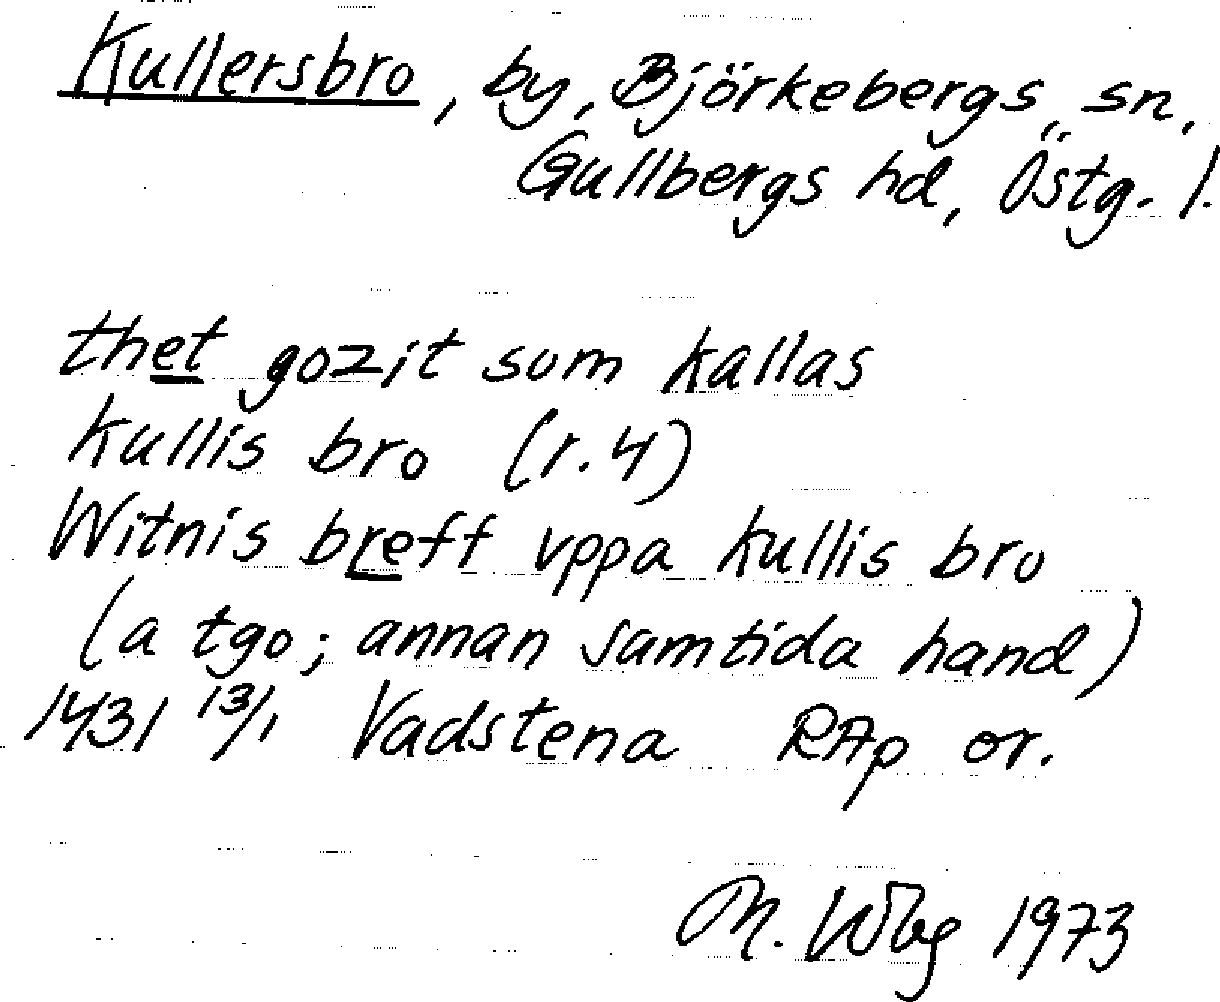 Kullersbro, by, Björkebergs sn,
Gullbergs hd, Östg. l.
thet gozit som kallas
kullis bro (r. 4)
Witnis breff vppa kullis bro
(a tgo; annan samtida hand)
1431 13/1 Vadstena RAp or.
M. Wbg 1973